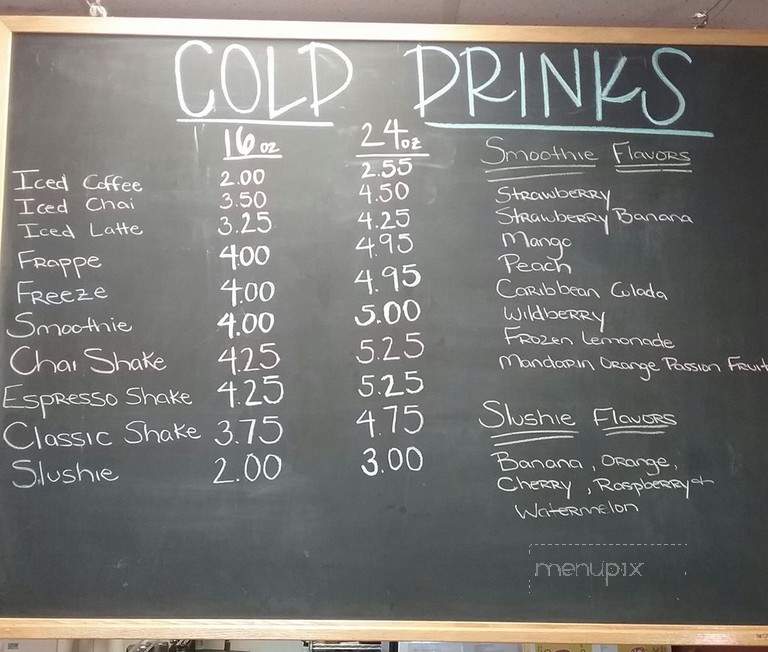 COLD DRINKS
16 oz 24 oz
Iced Coffee 2.00 2.55
Iced Chai 3.50 4.50
Iced Latte 3.25 4.25
Frappe 4.00 4.95
Freeze 4.00 4.95
Smoothie 4.00 5.00
Chai Shake 4.25 5.25
Espresso Shake 4.25 5.25
Classic Shake 3.75 4.75
Slushie 2.00 3.00
Smoothie Flavors
Strawberry
Strawberry Banana
Mango
Peach
Caribbean Colada
Wildberry
Frozen Lemonade
Mandarin Orange Passion Fruit
Slushie Flavors
Banana, Orange,
Cherry, Raspberry +
Watermelon
menupix